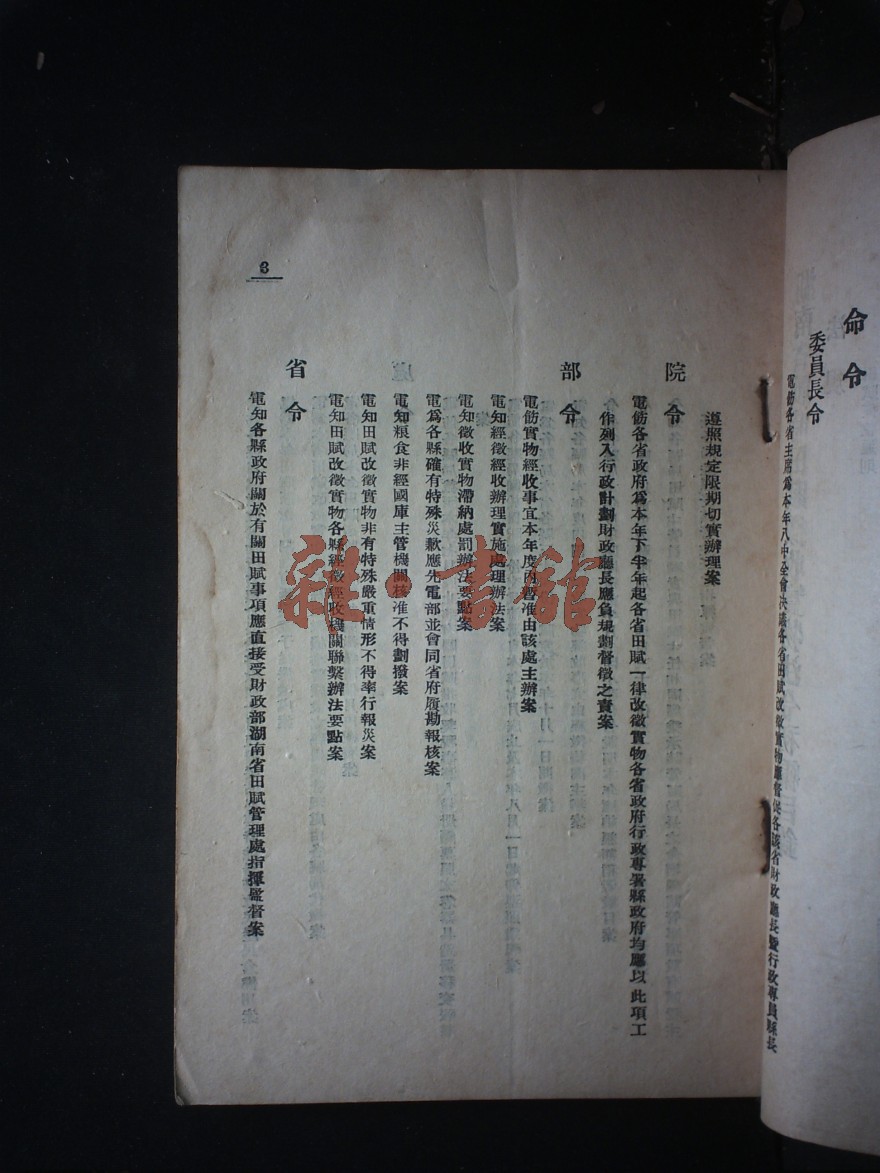 命令
委員長令
電飭各省主席爲本年八中全會決議各省田賦改徵實物應督促各該省財政廳長暨行政專員縣長
遵照規定限期切實辦理案
院令
電飭各省政府爲本年下半年起各省田賦一律改徵實物各省政府行政專署縣政府均應以此項工
作列入行政計劃財政廳長應負規劃督徵之責案
部令
電飭實物經收事宜本年度內暫准由該處主辦案
電知經徵經收辦理實施處理辦法案
電知徵收實物滯納處罰辦法要點案
電爲各縣確有特殊災歉應先電部並會同省府履勘報核案
電知粮食非經國庫主管機關核准不得劃撥案
電知田賦改徵實物非有特殊嚴重情形不得率行報災案
電知田賦改徵實物各縣經徵經收機關聯繫辦法要點案
省令
電知各縣政府關於有關田賦事項應直接受財政部湖南省田賦管理處指揮監督案
3
雜·書館